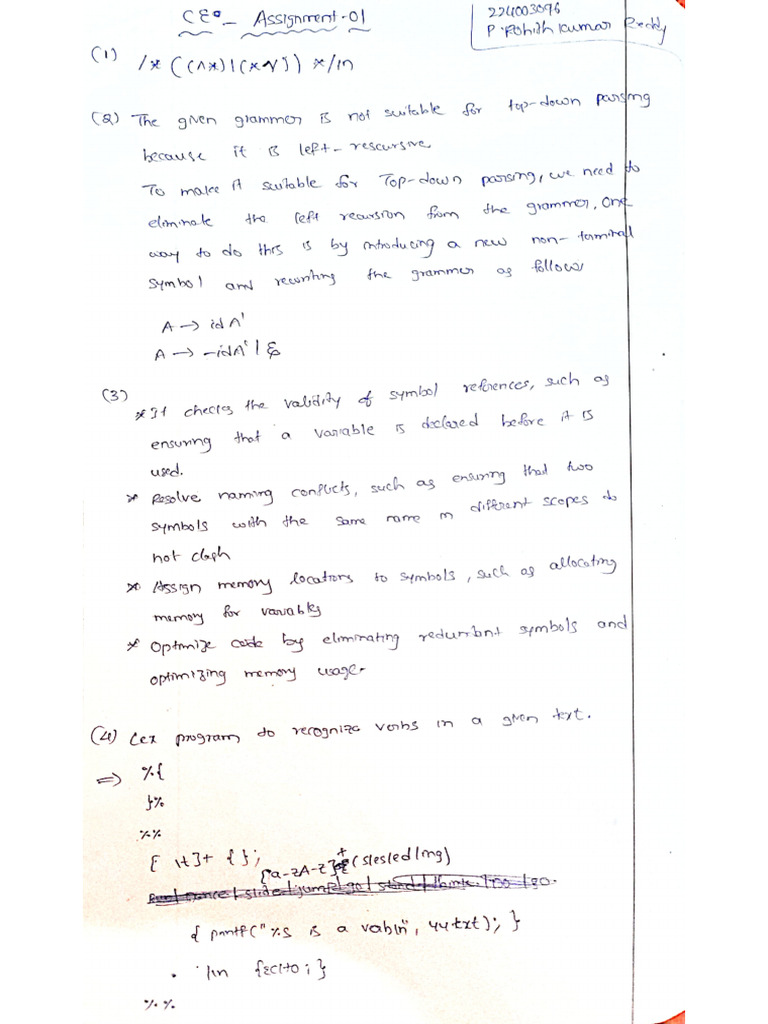 CEO - Assignment-01
224003096
P. Rohith Kumar Reddy
(1) /* ((^*)|(*√]) */in
(2) The given grammer is not suitable for top-down parsing
because it is left-rescursive
To make it suitable for Top-down parsing, we need to
eliminate the left recursion from the grammer, One
way to do this is by introducing a new non-terminal
symbol and rewriting the grammer as follow
A → id A'
A → -idA' | ε
(3)
* It checks the validity of symbol references, such as
ensuring that a variable is declared before it is
used.
* Resolve naming conflicts, such as ensuring that two
symbols with the same name in different scopes do
not clash
* Assign memory locations to symbols, such as allocating
memory for variables
* Optimize code by eliminating redundant symbols and
optimizing memory usage.
(4) Lex program to recognize verbs in a given text.
⇒ %{
}%
%%
[ \t]+ {};
[a-zA-Z]+(s|es|ed|ing)
{ printf("%s is a vab\n", yytxt); }
. \n {ECHO;}
%%